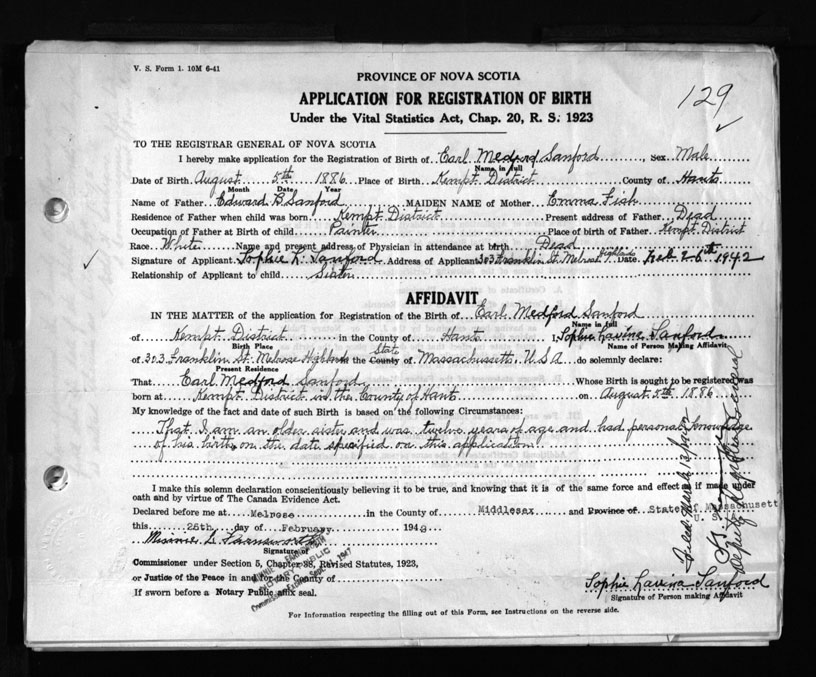 V. S. Form 1. 10M 6-41
PROVINCE OF NOVA SCOTIA
129
APPLICATION FOR REGISTRATION OF BIRTH
Under the Vital Statistics Act, Chap. 20, R. S. 1923
TO THE REGISTRAR GENERAL OF NOVA SCOTIA
I hereby make application for the Registration of Birth of Earl Medford Sanford, Sex Male
Name in full
Date of Birth August 5th 1886 Place of Birth Kempt District County of Hants
Month Date Year
Name of Father Edward B. Sanford MAIDEN NAME of Mother Emma Fish
Residence of Father when child was born Kempt District Present address of Father Dead
Occupation of Father at Birth of child Painter Place of birth of Father Kempt District
Race White Name and present address of Physician in attendance at birth Dead
Signature of Applicant Sophie L. Sanford Address of Applicant 303 Franklin St. Melrose Highlands Date Feb 26th 1942
Relationship of Applicant to child Sister
AFFIDAVIT
IN THE MATTER of the application for Registration of the Birth of Earl Medford Sanford
Name in full
of Kempt District in the County of Hants I, Sophie Lavina Sanford
Birth Place Name of Person Making Affidavit
of 303 Franklin St. Melrose Highlands in the County of State Massachusetts, U.S.A do solemnly declare:
Present Residence
That Earl Medford Sanford Whose Birth is sought to be registered was
born at Kempt District in the County of Hants on August 5th 1886
My knowledge of the fact and date of such Birth is based on the following Circumstances:
That I am an older sister and was twelve years of age and had personal knowledge
of his birth, on the date specified on this application
I make this solemn declaration conscientiously believing it to be true, and knowing that it is of the same force and effect as if made under
oath and by virtue of The Canada Evidence Act.
Declared before me at Melrose in the County of Middlesex and Province of State of Massachusett
this 26th day of February 194
Minnie L Farnsworth
Signature of
Commissioner under Section 5, Chapter 38, Revised Statutes, 1923,
or Justice of the Peace in and for the County of
If sworn before a Notary Public affix seal.
NOTARY PUBLIC
Commission Expires Sept. 1947
Sophie Lavina Sanford
Signature of Person making Affidavit
Filed March 13/
Deputy Registrar General
For Information respecting the filling out of this Form, see Instructions on the reverse side.